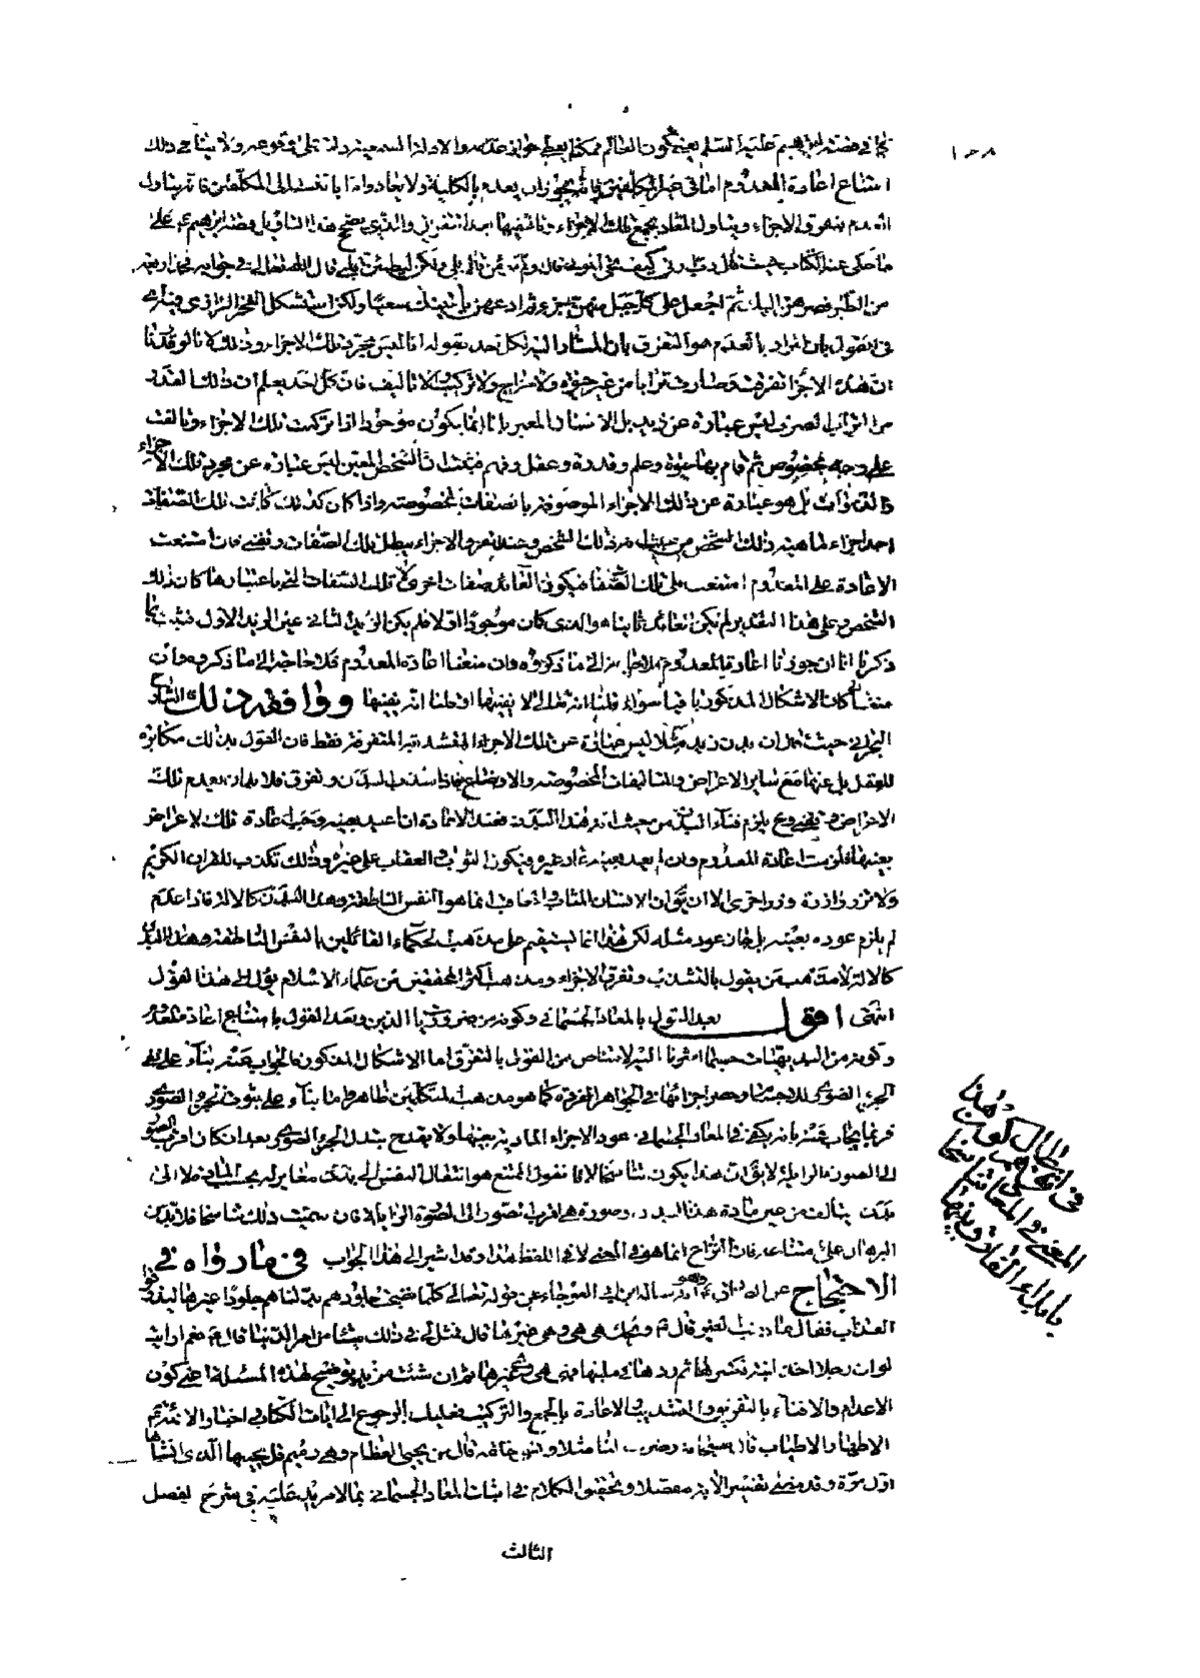 في قصة ابراهيم عليه السلم يعني كون العالم ممكنا يعطي جواز عدمه والادلة السمعية دلت على وقوعه ولا ينافي ذلك
امتناع اعادة المعدوم اما في غير المكلفين فانه يجوز ان يعدم بالكلية ولا يعاد واما بالنسبة الى المكلفين فانه يتاول
العدم بتفرق الاجزاء ويتاول المعاد بجمع تلك الاجزاء وتاليفها بعد التفريق والذي يصحح هذا التاويل قصة ابراهيم ع على
ما حكى عنه الكتاب حيث قال رب ارني كيف تحيي الموتى قال اولم تؤمن قال بلى ولكن ليطمئن قلبي قال الله تعالى في جوابه فخذ اربعة
من الطير فصرهن اليك ثم اجعل على كل جبل منهن جزءا ثم ادعهن ياتينك سعيا ولكن استشكل الفخر الرازي
في القول بان المراد بالعدم هو التفرق بان المشار اليه لكل احد بقوله انا ليس مجرد تلك الاجزاء وذلك لانا لو قدرنا
ان هذه الاجزاء تفرقت وصارت ترابا من غير حيوة ولا مزاج ولا تركيب ولا تاليف فان كل احد يعلم ان ذلك القدر
من التراب الصرف ليس عبارة عن زيد بل الانسان المعبر بانا انما يكون موجودا اذا تركبت تلك الاجزاء وتالفت
على وجه مخصوص ثم قام بها حيوة وعلم وقدرة وعقل وفهم فثبت ان الشخص المعين ليس عبارة عن مجرد تلك الاجزاء
والذوات بل هو عبارة عن تلك الاجزاء الموصوفة بالصفات المخصوصة واذا كان كذلك كانت تلك الصفات
احد اجزاء لماهية ذلك الشخص من حيث هو ذلك الشخص وعند تفرق الاجزاء يبطل تلك الصفات وتفنى فان امتنعت
الاعادة على المعدوم امتنعت على تلك الصفات فيكون العائد صفات اخرى غير تلك الصفات التي باعتبارها كان ذلك
الشخص وعلى هذا التقدير لم يكن العائد ثانيا هو الذي كان موجودا اولا فلم يكن الزيد الثاني عين الزيد الاول فثبت بما
ذكرنا انا ان جوزنا اعادة المعدوم فلا حاجة الى ما ذكروه وان منعنا اعادة المعدوم فلا حاجة الى ما ذكروه وان
كان الاشكال المذكور باقيا سواء قلنا انه تعالى لا يفنيها او قلنا انه يفنيها ووافقه ذلك الشارح
البحراني حيث قال ان بدن زيد مثلا ليس عبارة عن تلك الاجزاء المتفرقة فقط فان القول بذلك مكابرة
للعقل بل عنها مع ساير الاعراض والتاليفات المخصوصة والاوضاع فاذا شذب البدن وتفرق فلا بد ان يعدم تلك
الاعراض وتفنى وح يلزم فناء البدن من حيث انه هذا البدن فعند الاعادة ان اعيد بعينه وجب اعادة تلك الاعراض
بعينها فلزمت اعادة المعدوم وان لم يعد بعينه عاد غيره فيكون الثواب والعقاب على غيره وذلك تكذيب للقران الكريم
ولا تزر وازرة وزر اخرى الا ان يقول ان الانسان المثاب والمعاقب انما هو النفس الناطقة وهذا البدن كالالة فاذا عدم
لم يلزم عوده بعينه بل جاز عود مثله لكن هذا انما يستقيم على مذهب الحكماء القائلين بالنفس الناطقة وهذا البدن
كالالة لا مذهب من يقول بالتشذب وتفرق الاجزاء ومذهب اكثر المحققين من علماء الاسلام يؤل الى هذا القول
انتهى اقول بعد القول بالمعاد الجسماني وكونه من ضروريات الدين وبعد القول بامتناع اعادة المعدوم
وكونه من البديهيات حسبما اشرنا اليه لا مناص من القول بالتفرق اما الاشكال المذكور فالجواب عنه بناء على نفي
الجزء الصوري للاجسام وحصر اجزائها في الجواهر الفردة كما هو مذهب المتكلمين ظاهر واما بناء على ثبوت الجزء الصوري
فربما يجاب عنه بانه يكفي في المعاد الجسماني عود الاجزاء المادية بعينها ولا يقدح تبدل الجزء الصوري بعد ان كان اقرب الصور
الى الصورة الزايلة لا يق ان هذا يكون تناسخا لانا نقول الممتنع هو انتقال النفس الى بدن مغاير له بحسب المادة لا الى
بدن يتالف من عين مادة هذا البدن وصورة هي اقرب الصور الى الصورة الزايلة فان سميت ذلك تناسخا فلا بد من
البرهان على امتناعه فان النزاع انما هو في المعنى لا في اللفظ هذا وقد اشير الى هذا الجواب في ما رواه في
الاحتجاج عن الصادق ع وهو انه ساله ابن ابي العوجاء عن قوله تعالى كلما نضجت جلودهم بدلناهم جلودا غيرها ليذوقوا
العذاب فقال ما ذنب الغير قال ويحك هي هي وهي غيرها قال فمثل لي في ذلك شيئا من امر الدنيا قال نعم ارايت
لو ان رجلا اخذ لبنة فكسرها ثم ردها في ملبنها فهي هي وهي غيرها ثم ان شئت مزيد توضيح لهذه المسئلة اعني كون
الاعدام والافناء بالتفريق والتشذيب والاعادة بالجمع والتركيب فعليك بالرجوع الى ايات الكتاب واخبار الائمة
الاطهار الاطياب قال سبحانه وضرب لنا مثلا ونسي خلقه قال من يحيي العظام وهي رميم قل يحييها الذي انشاها
اول مرة وقد مضى تفسير الاية مفصلا وتحقيق الكلام في اثبات المعاد الجسماني بما لا مزيد عليه في شرح الفصل
الثالث
في ابطال كون هذا
المعنى في المعاد تناسخا